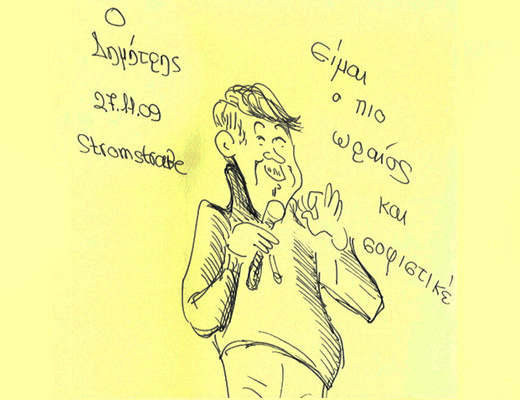 Ο
Δημήτρης
27.11.09
Stromstraße
είμαι
ο πιο
ωραίος
και
σοφιστικέ